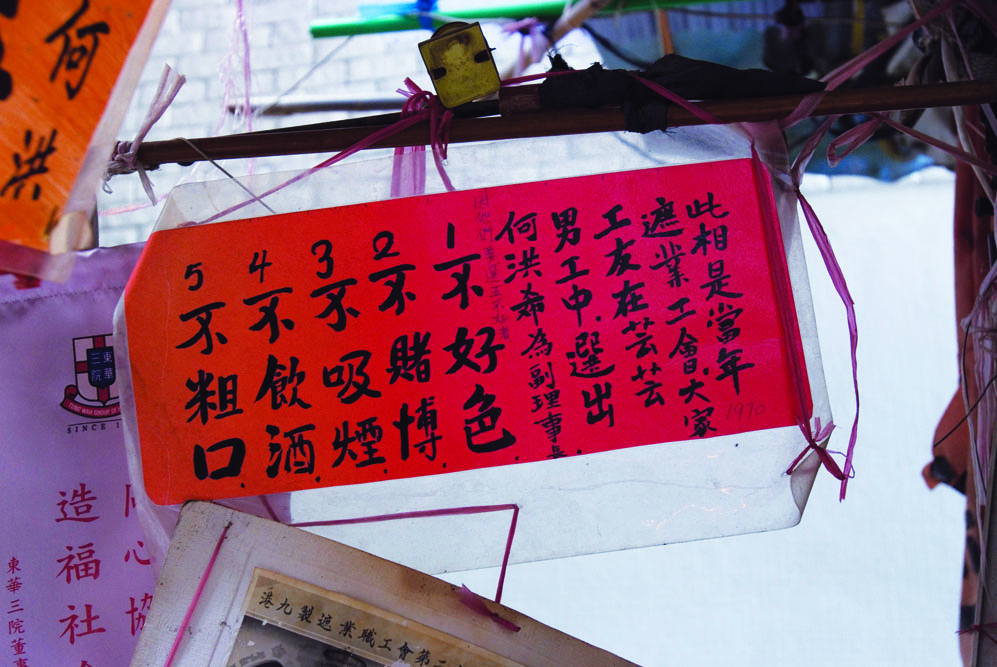 此相是當年
遮業工會.大家
工友在芸芸
男工中.選出
何洪希為副理事長
1970
因他們要選五不好者
1不好色
2不賭博
3不吸煙
4不飲酒
5不粗口
何洪
東華
三院
SINCE 1
同心協
造福社
東華三院董事
港九製遮業職工會第二